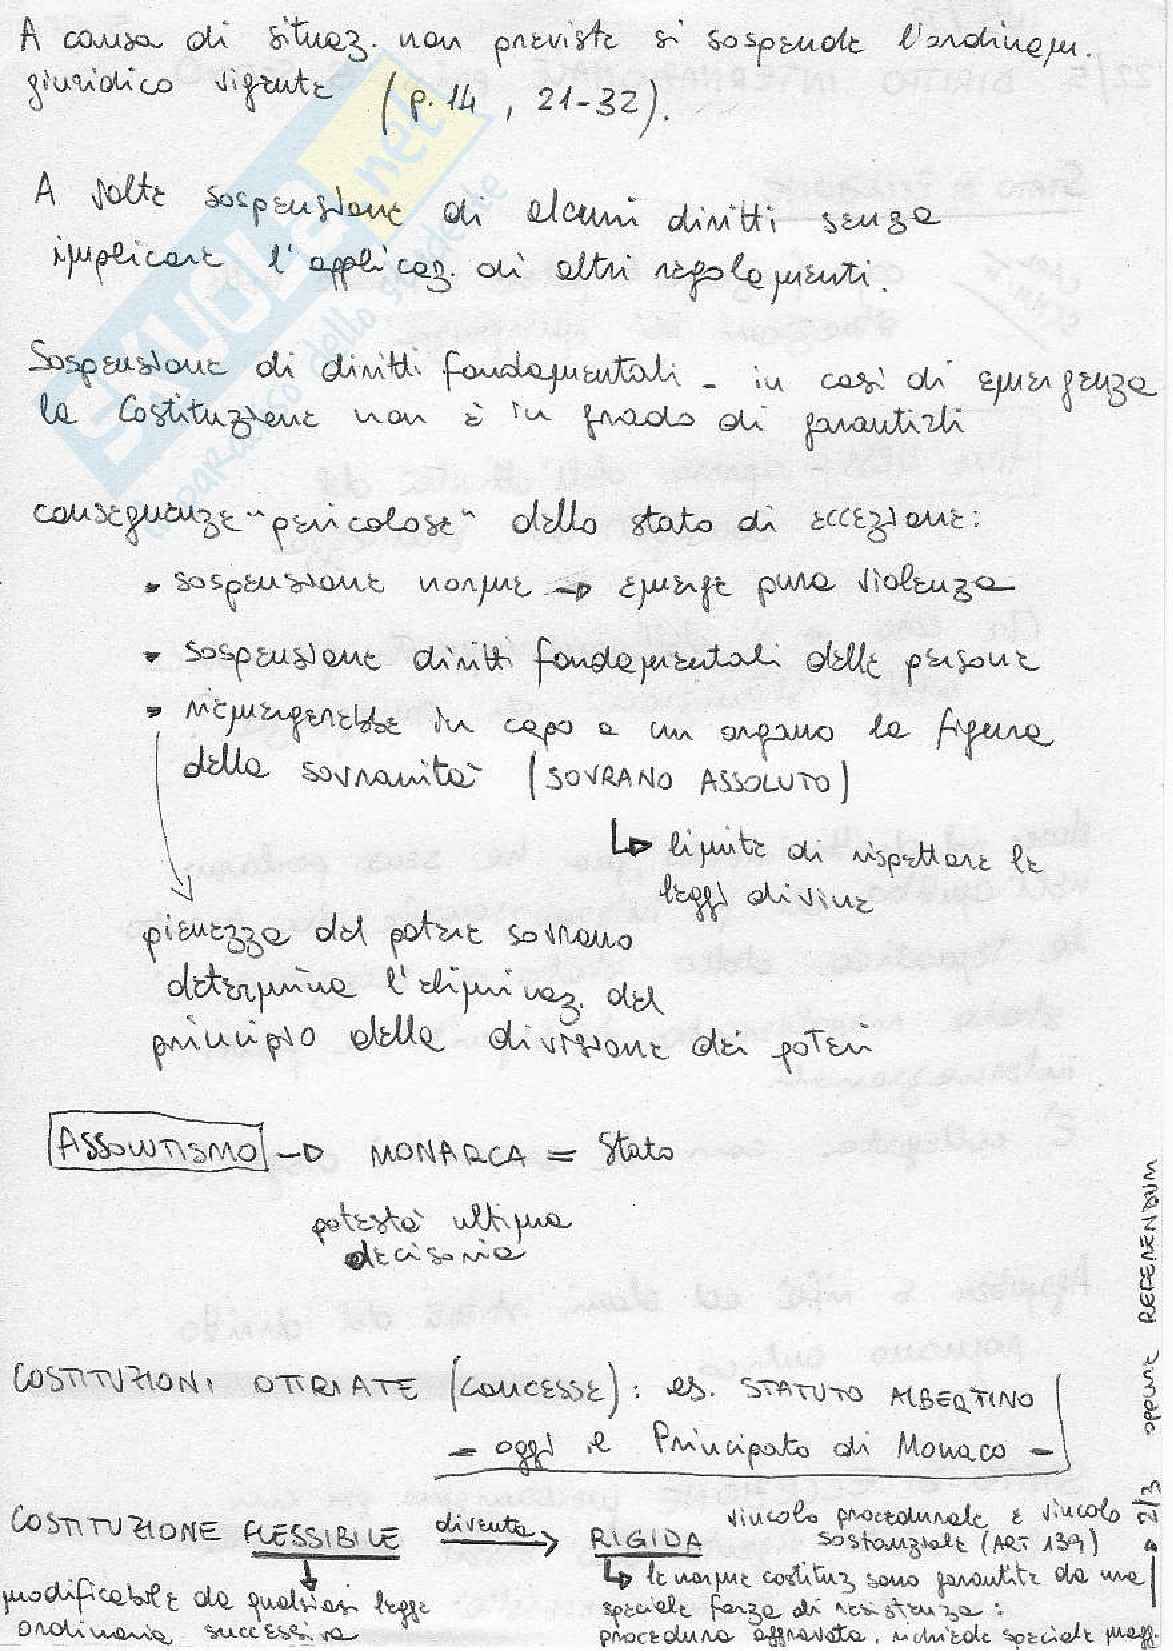 A causa di situaz. non previste si sospende l'ordinam.
giuridico vigente (p. 14, 21-32).
A volte sospensione di alcuni diritti senza
implicare l'applicaz. di altri regolamenti.
Sospensione di diritti fondamentali - in casi di emergenza
la Costituzione non è in grado di garantirli
conseguenze "pericolose" dello stato di eccezione:
• sospensione norme → emerge pura violenza
• sospensione diritti fondamentali delle persone
• riemergerebbe in capo a un organo la figura
della sovranità (SOVRANO ASSOLUTO)
↳ limite di rispettare le
leggi divine
pienezza del potere sovrano
determina l'eliminaz. del
principio della divisione dei poteri
ASSOLUTISMO → MONARCA = Stato
potestà ultima
decisoria
COSTITUZIONI OTTRIATE (CONCESSE): es. STATUTO ALBERTINO
- oggi il Principato di Monaco -
COSTITUZIONE FLESSIBILE diventa → RIGIDA
vincolo procedurale e vincolo
sostanziale (ART 139)
modificabile da qualsiasi legge
ordinaria successiva
↳ le norme costituz sono garantite da una
speciale forza di resistenza:
procedura aggravata, richiede speciale magg.
2/3 oppure REFERENDUM
SKUOLA.net